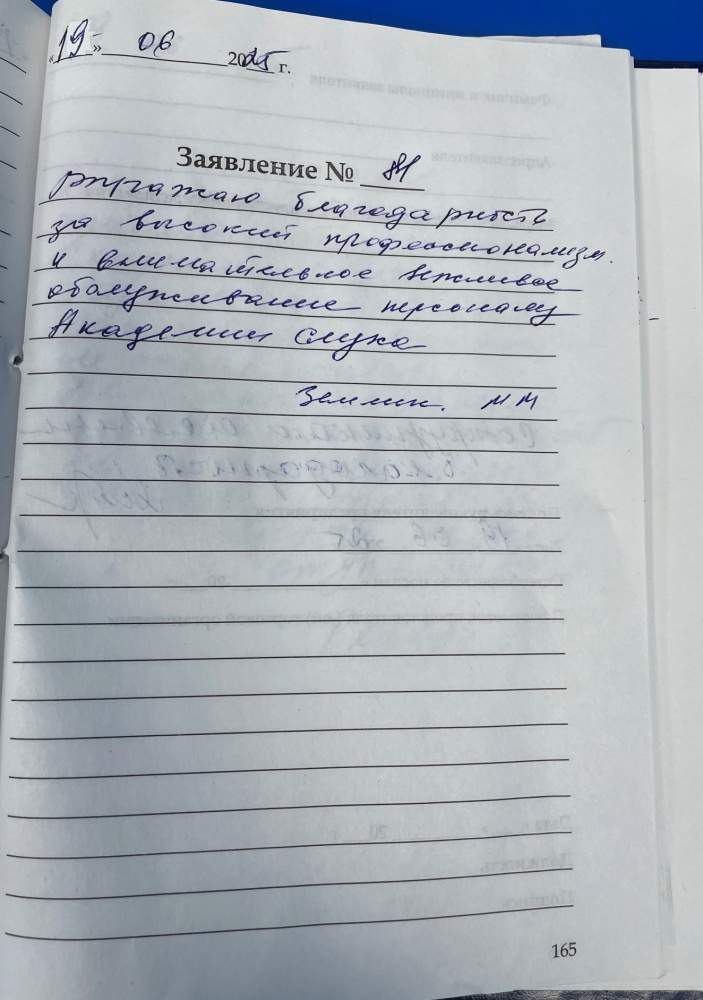 «19» 06 2025 г.
Заявление № 81
Выражаю благодарность
за высокий профессионализм.
и внимательное вежливое
обслуживание персоналу
Академии слуха
Землин. ММ
165